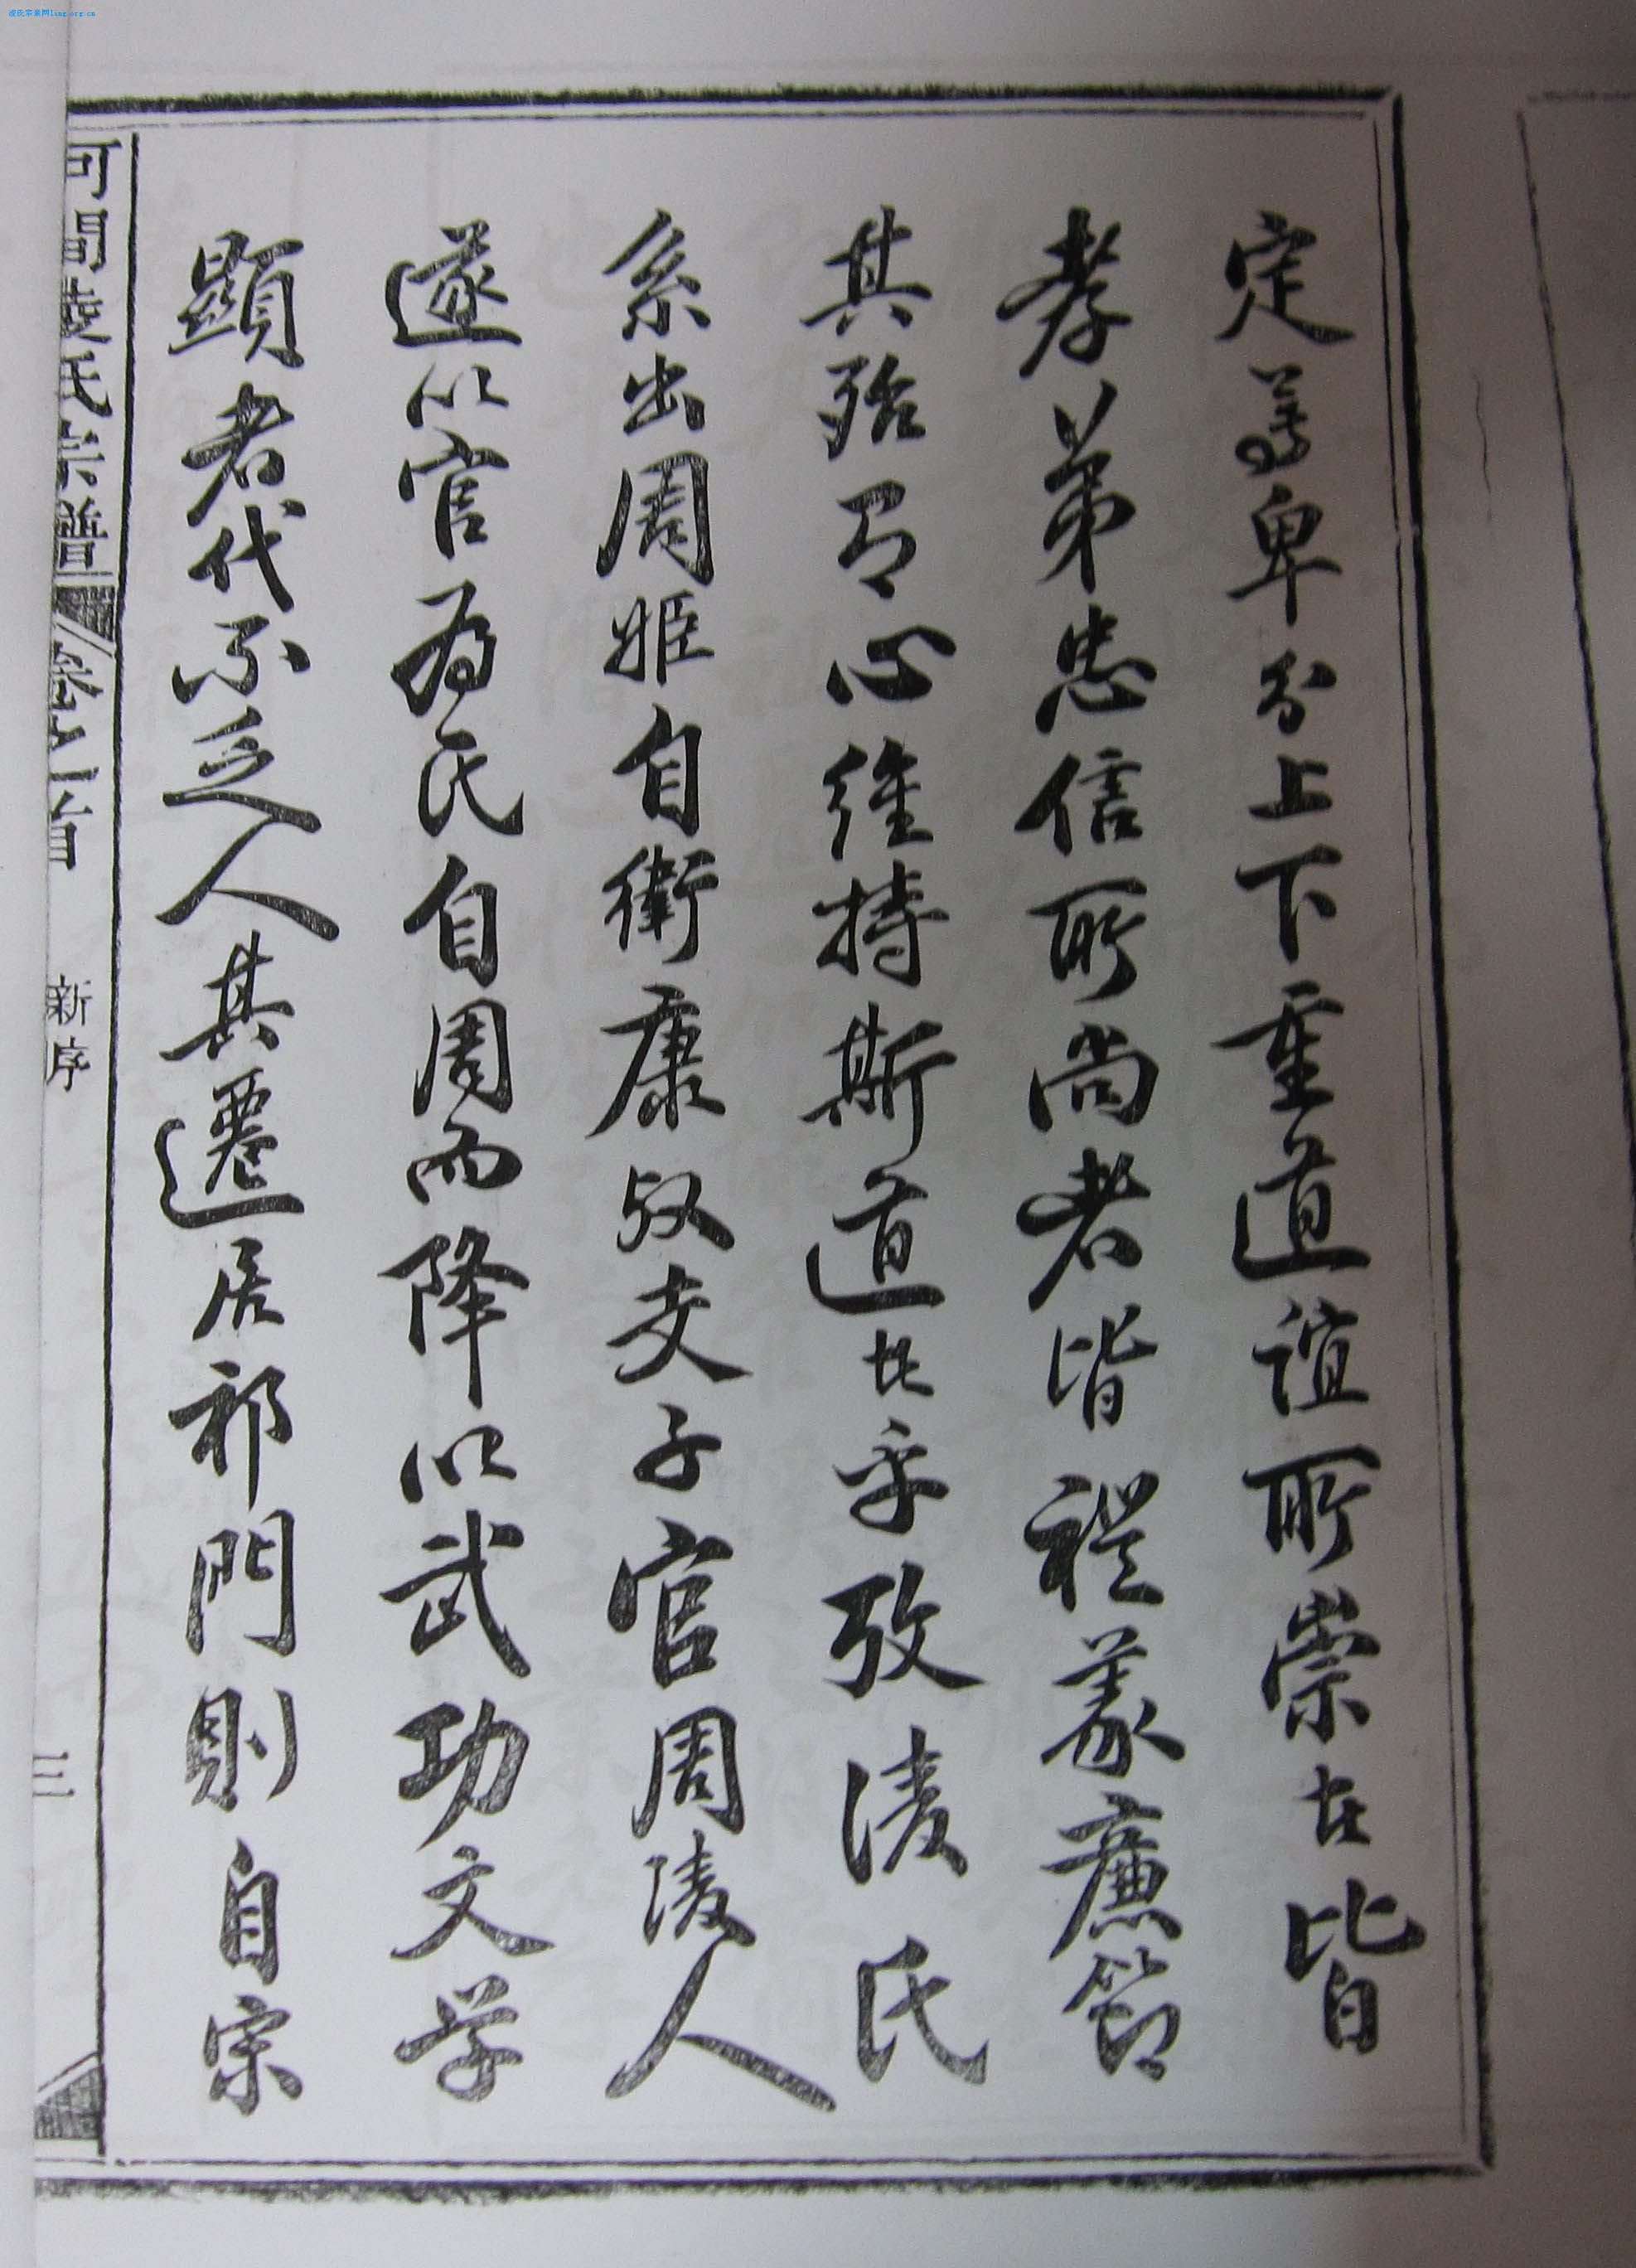 凌氏宗亲网ling.org.cn
定尊卑分上下重道誼所崇在皆
孝弟忠信所尚者皆禮義廉節
其殆有心維持斯道也乎攷淩氏
系出周姬自衛康叔支子官周淩人
遂以官為氏自周而降以武功文学
顯者代不乏人其遷居祁門則自宗
河間凌氏宗譜 卷之一首 新序 三